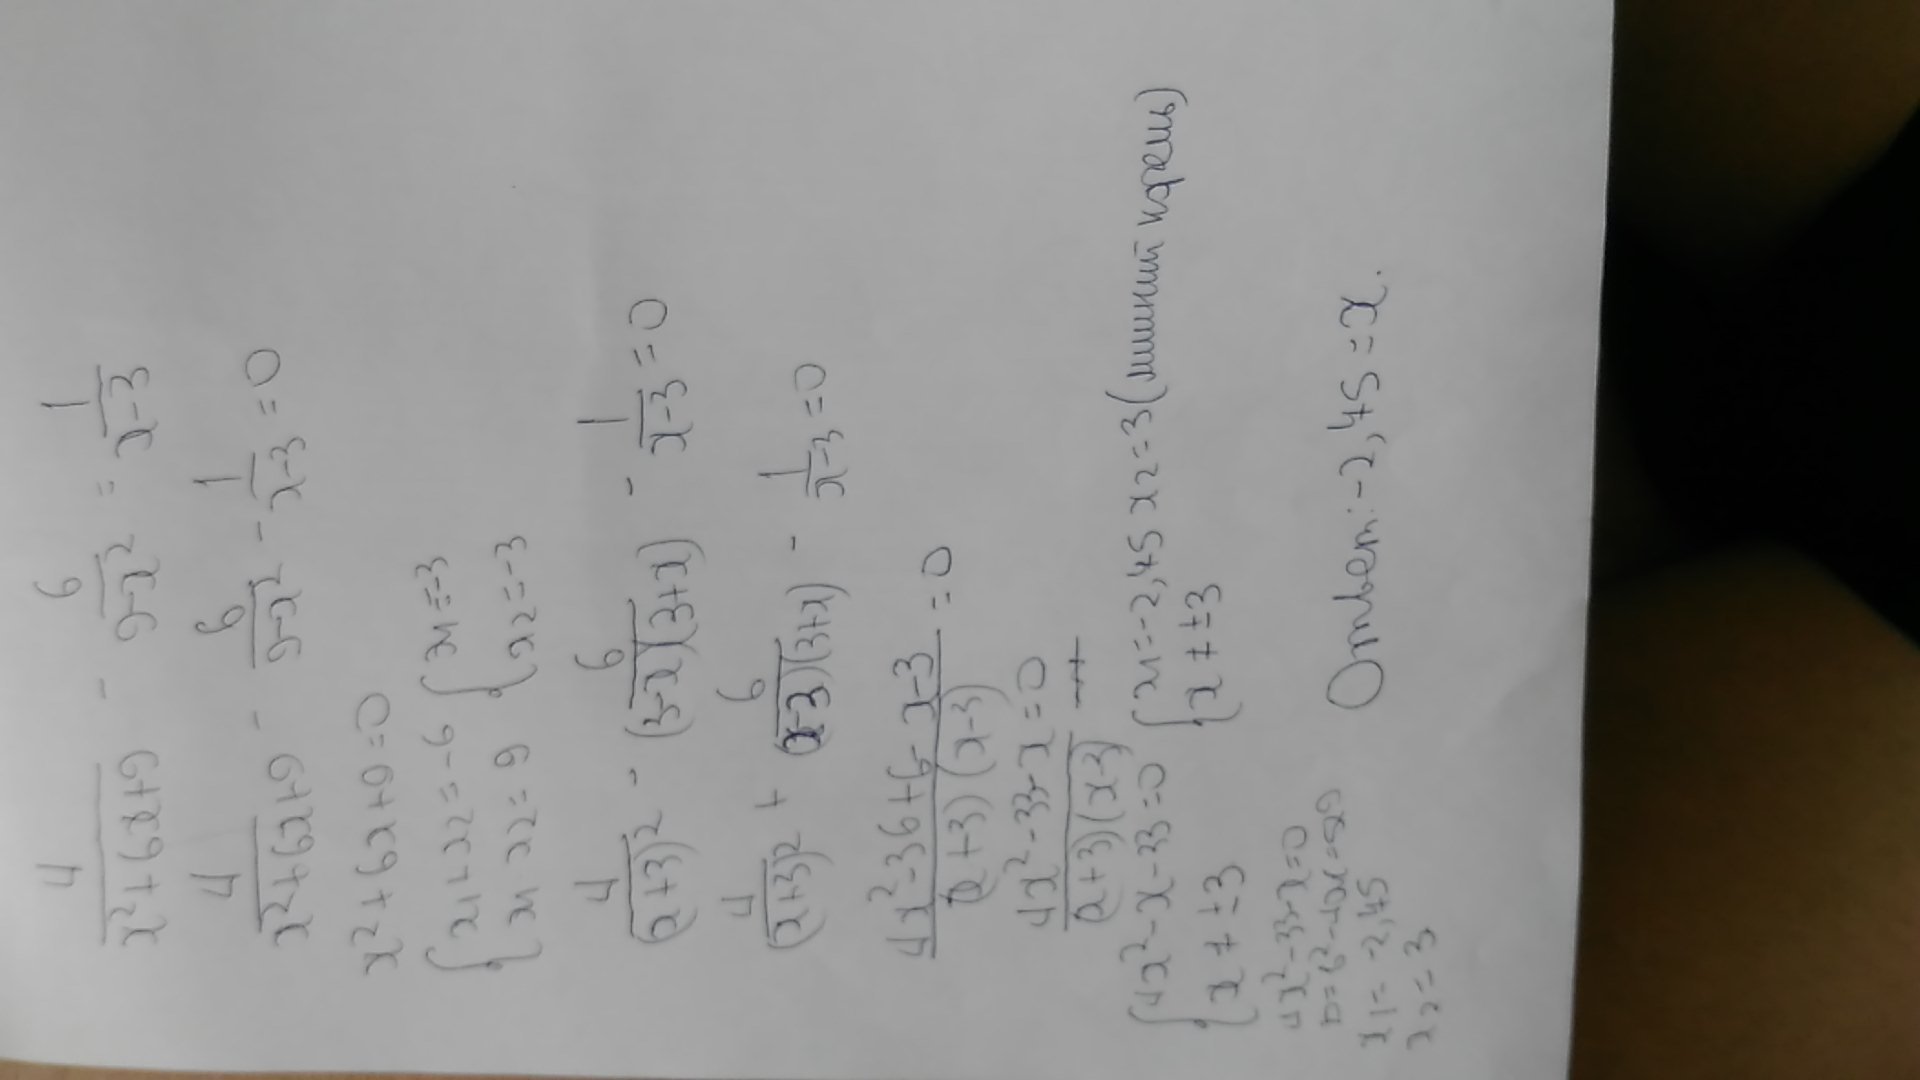 4/(x²+6x+9) - 6/(9-x²) = 1/(x-3)
4/(x²+6x+9) - 6/(9-x²) - 1/(x-3) = 0
x²+6x+9=0
{x1+x2=-6 {x1=-3
{x1·x2=9 {x2=-3
4/(x+3)² - 6/((3-x)(3+x)) - 1/(x-3) = 0
4/(x+3)² + 6/((x-3)(3+x)) - 1/(x-3) = 0
(4x²-36+6-x-3)/((x+3)(x-3)) = 0
(4x²-33-x=0)/((x+3)(x-3))
{4x²-x-33=0 {x1=-2,45 x2=3(лишний корень)
{x≠±3 {x≠±3
4x²-33-x=0
D=b²-4ac=529
x1=-2,45
x2=3
Ответ:-2,45=x.